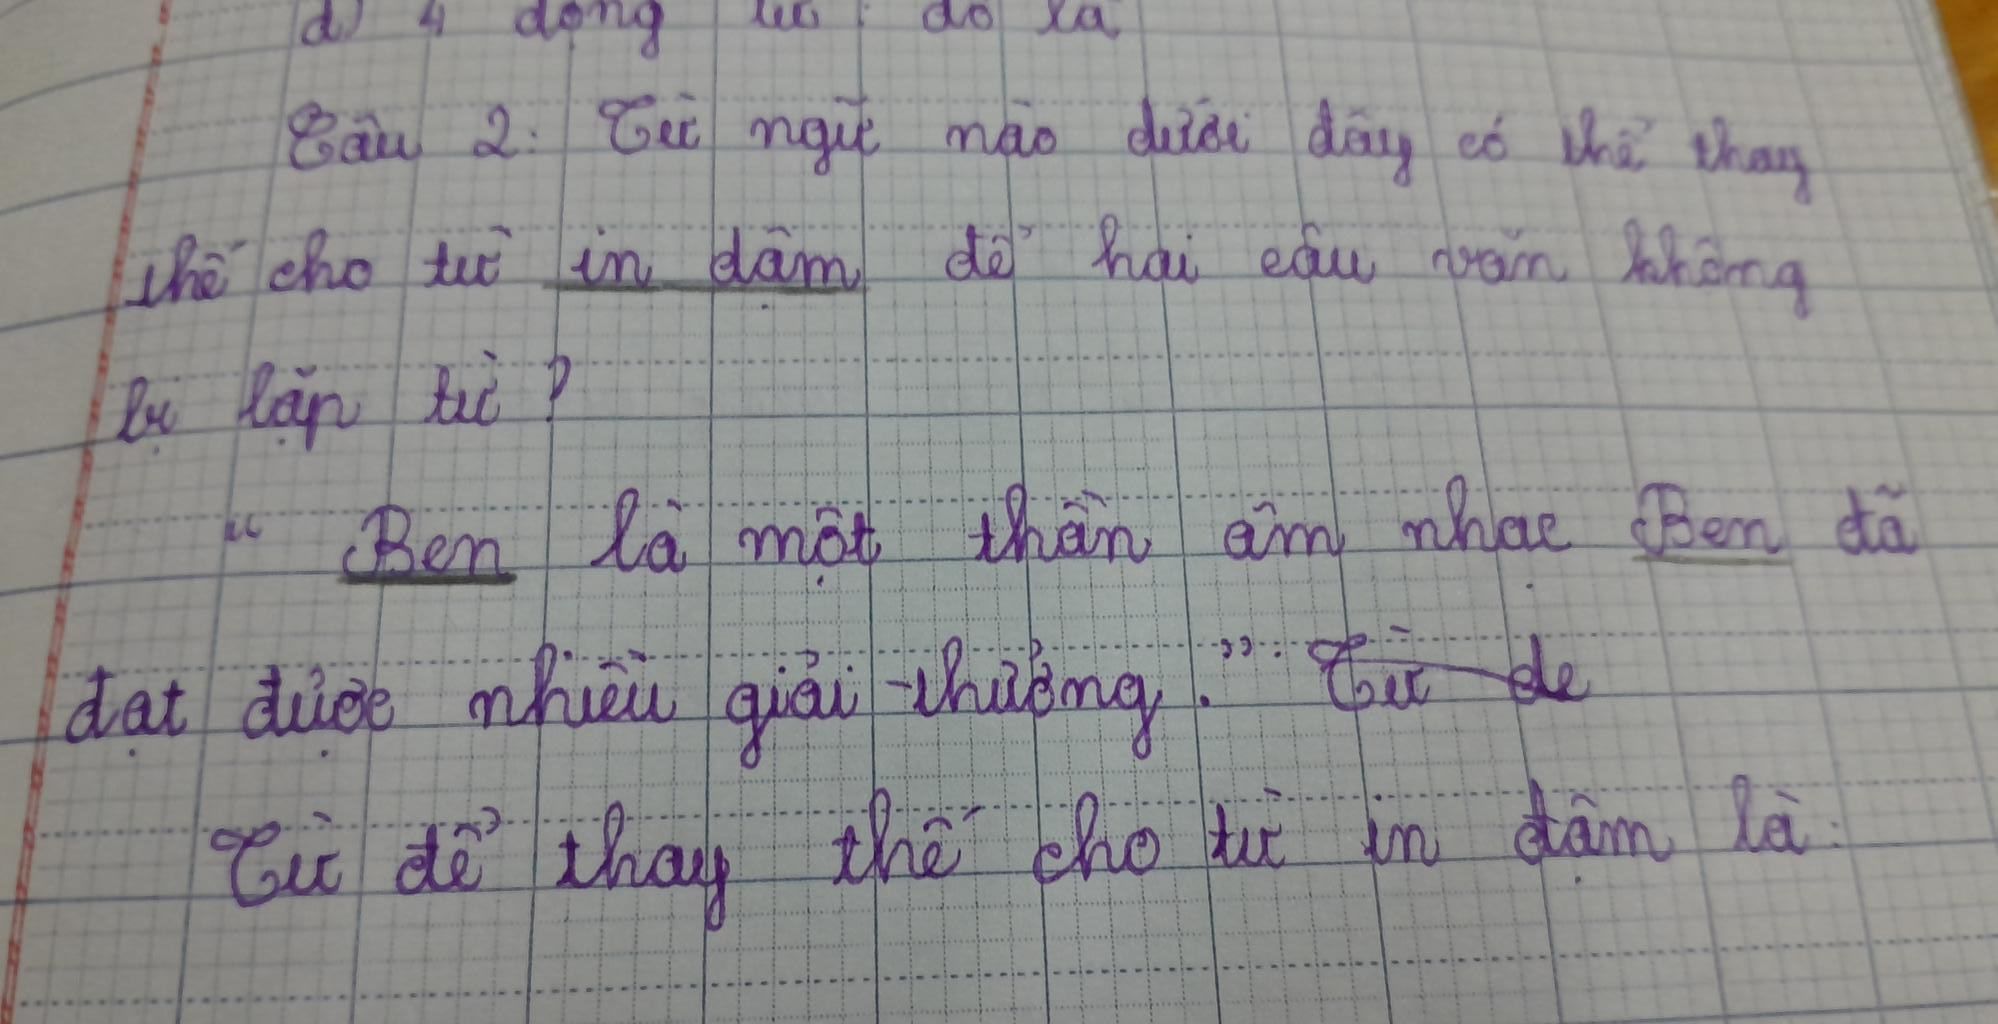 d) 4 động từ đó là
Câu 2: Từ ngữ nào dưới đây có thể thay
thế cho từ in đậm để hai câu văn không
bị lặp từ?
" Ben là một thần âm nhạc Ben đã
đạt được nhiều giải thưởng.": Từ de
Từ để thay thế cho từ in đậm là: